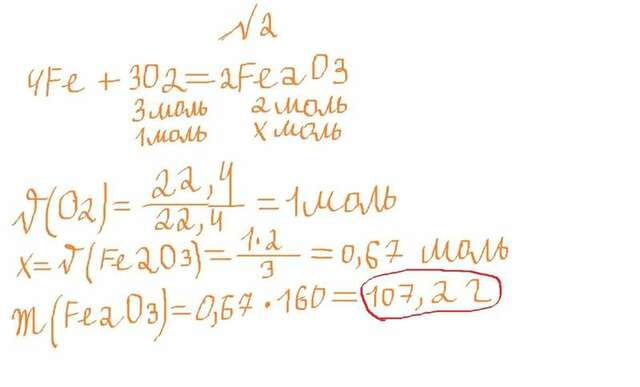 №2
4Fe + 3O2 = 2Fe2O3
3 моль 2 моль
1 моль x моль
ν(O2) = 22,4 / 22,4 = 1 моль
x = ν(Fe2O3) = 1·2 / 3 = 0,67 моль
m(Fe2O3) = 0,67 · 160 = 107,2 г